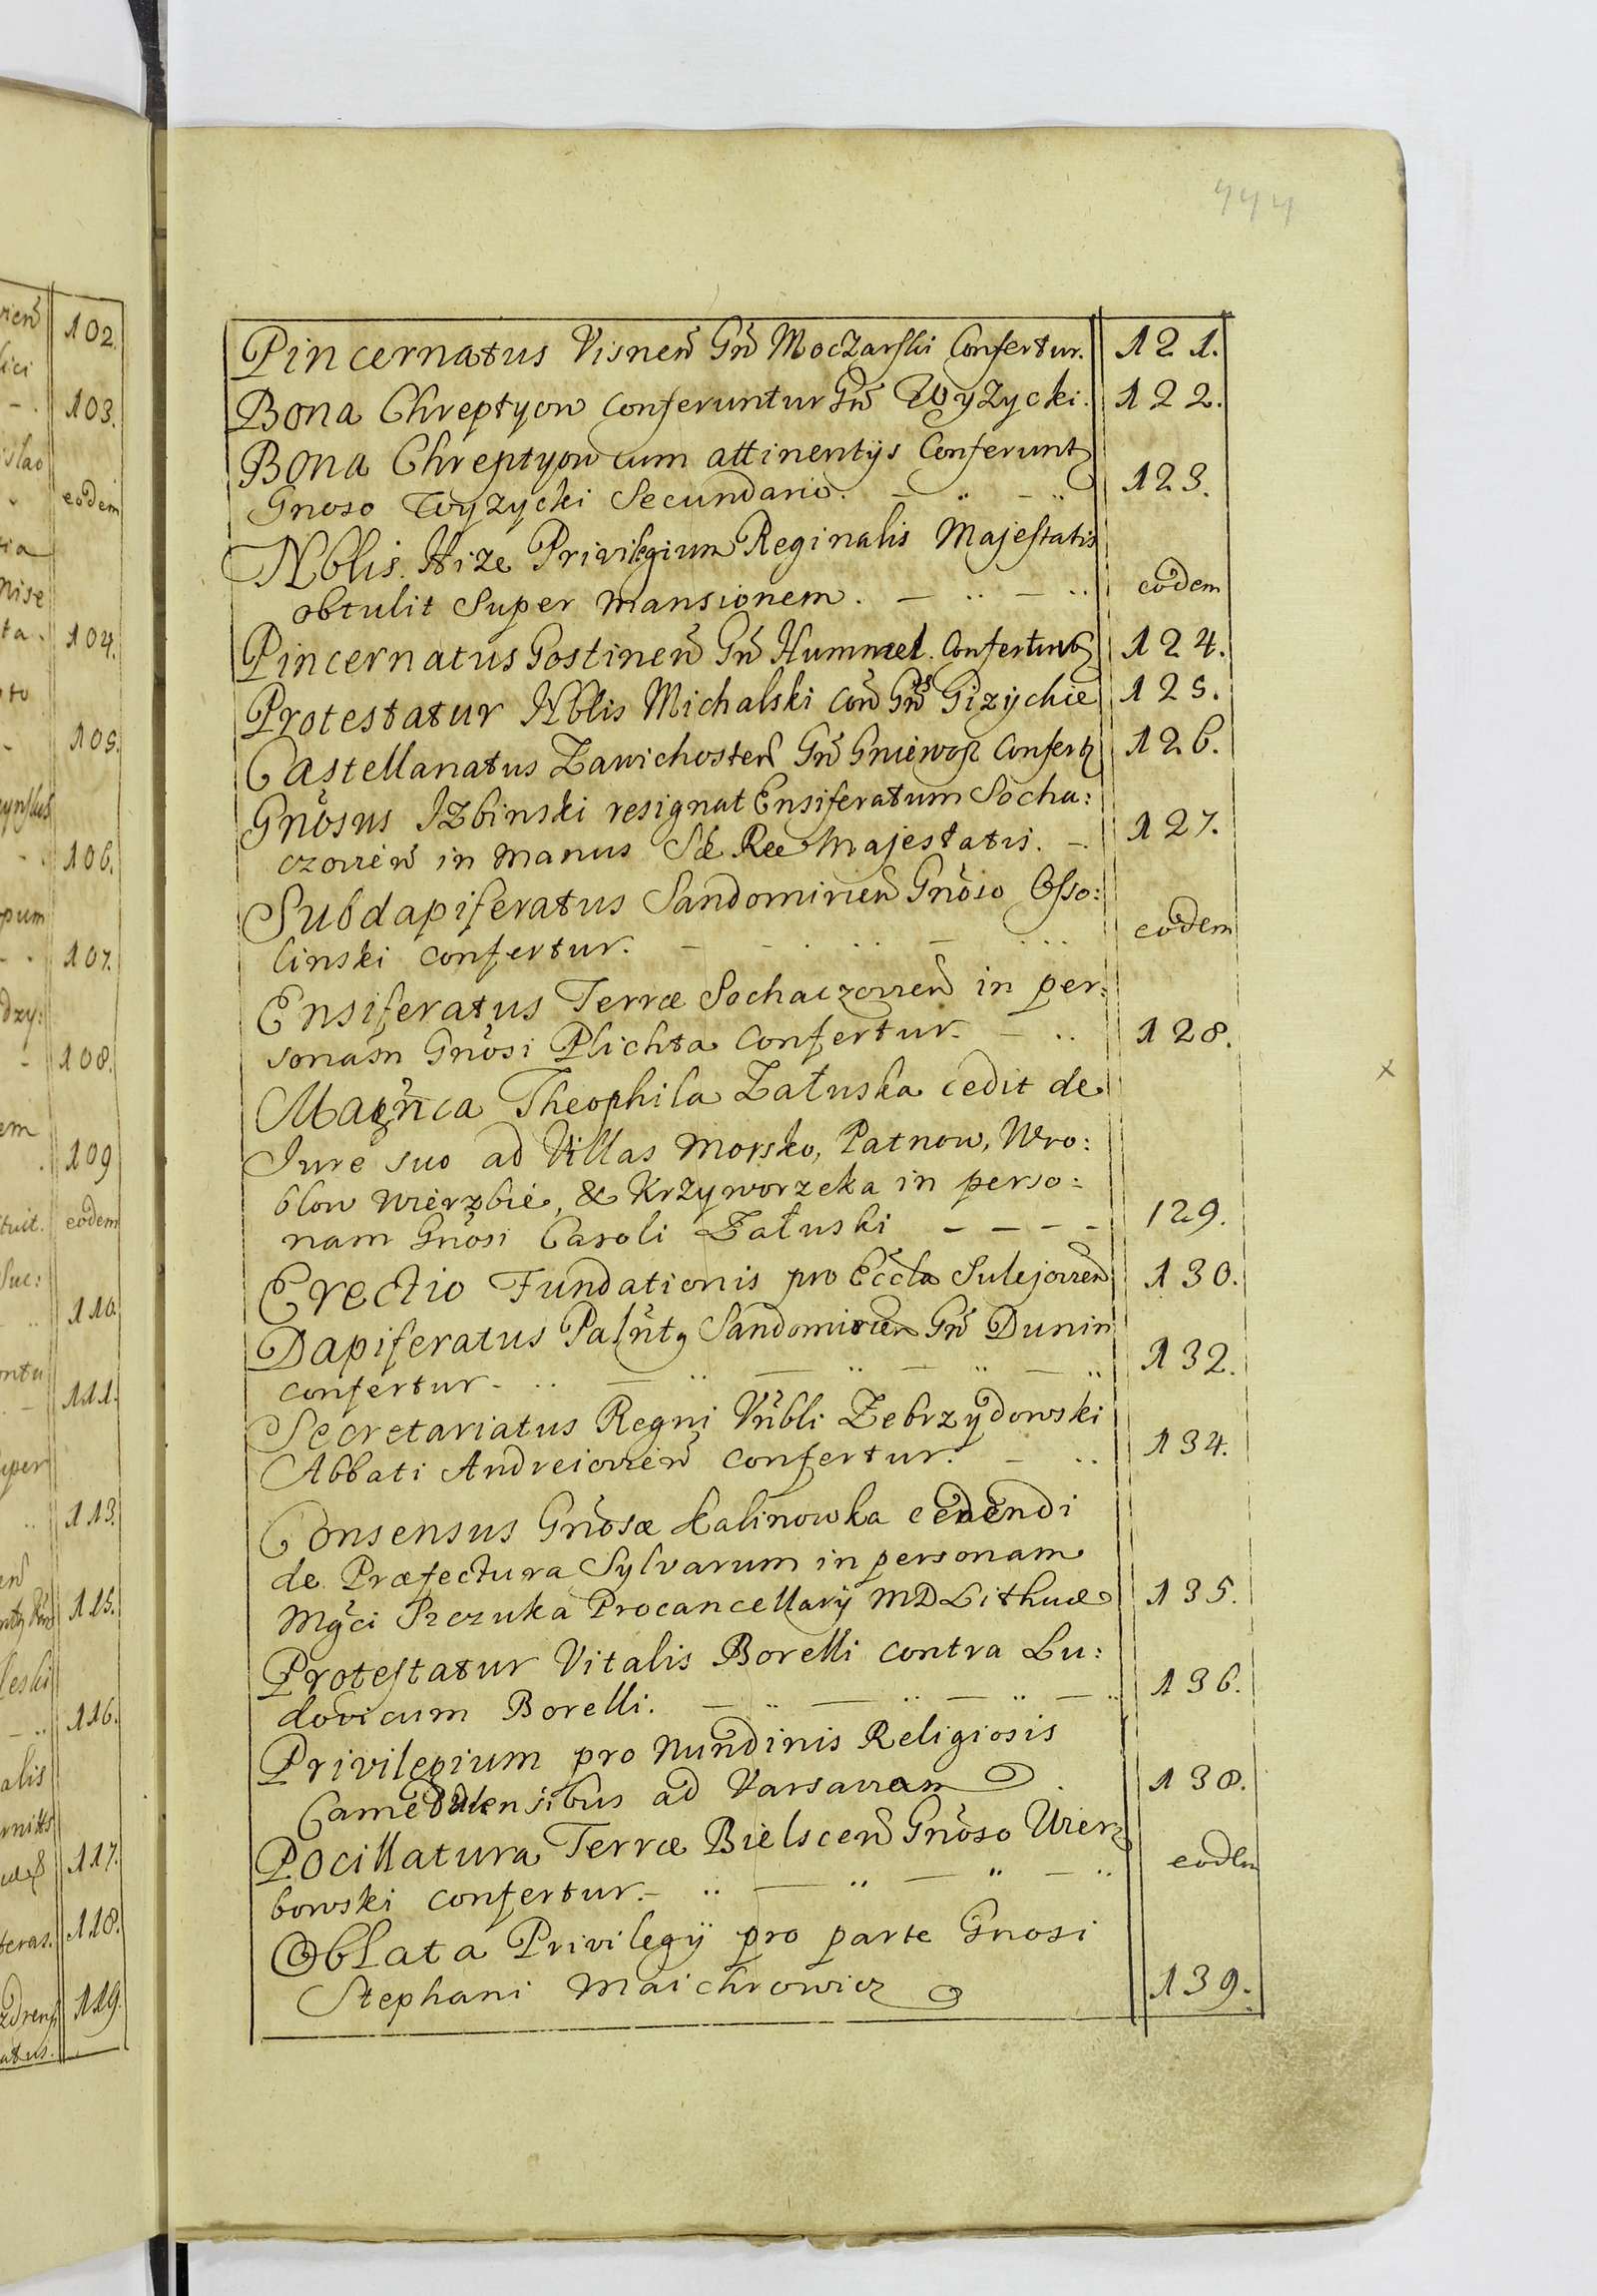 444
Pincernatus Visneñ Gñ Moczarski Confertur. 121.
Bona Chreptyow conferuntur Gñ Wyzycki. 122.
Bona Chreptyow cum attinentijs Conferunt
Gnoso Wyzycki Secundario. 123.
Nblis Hize Privilegium Reginalis Majestatis
obtulit Super mansionem. eodem
Pincernatus Gostineñ Gñ Hummel Confertur 124.
Protestatur Nblis Michalski coñ Gñs Gizyckie 125.
Castellanatus Zawichosteñ Gñ Gniewosz Confert 126.
Gnosus Izbinski resignat Ensiferatum Socha:
czovieñ in manus Sæ Ræ Majestatis. 127.
Subdapiferatus Sandomirieñ Gnoso Osso:
linski confertur. eodem
Ensiferatus Terræ Sochaczovieñ in per:
sonam Gnosi Plichta Confertur. 128.
Magnca Theophila Załuska cedit de
Jure suo ad Villas Morsko, Patnow, Wro:
blow Wierzbie, & Krzyworzeka in perso:
nam Gnosi Caroli Załuski 129.
Erectio Fundationis pro Eccla Sulejovieñ 130.
Dapiferatus Palnty Sandomirieñ Gñ Dunin
confertur. 132.
Secretariatus Regni Vnbli Zebrzydowski
Abbati Andreiovieñ confertur. 134.
Consensus Gnosæ Kalinowska cedendi
de Præfectura Sylvarum in personam
Mgci Szczuka Procancellarij MDLithuæ 135.
Protestatur Vitalis Borelli contra Lu:
dovicum Borelli. 136.
Privilegium pro Nundinis Religiosis
Camedulensibus ad Varsaviam 138.
Pocillatura Terræ Bielsceñ Gnoso Wierz
bowski confertur. eodem
Oblata Privilegij pro parte Gnosi
Stephani Maichrowicz 139.
102.
103.
eodem
104.
105.
106.
107.
108.
109
eodem
110.
111.
113.
115.
116.
117.
118.
119.